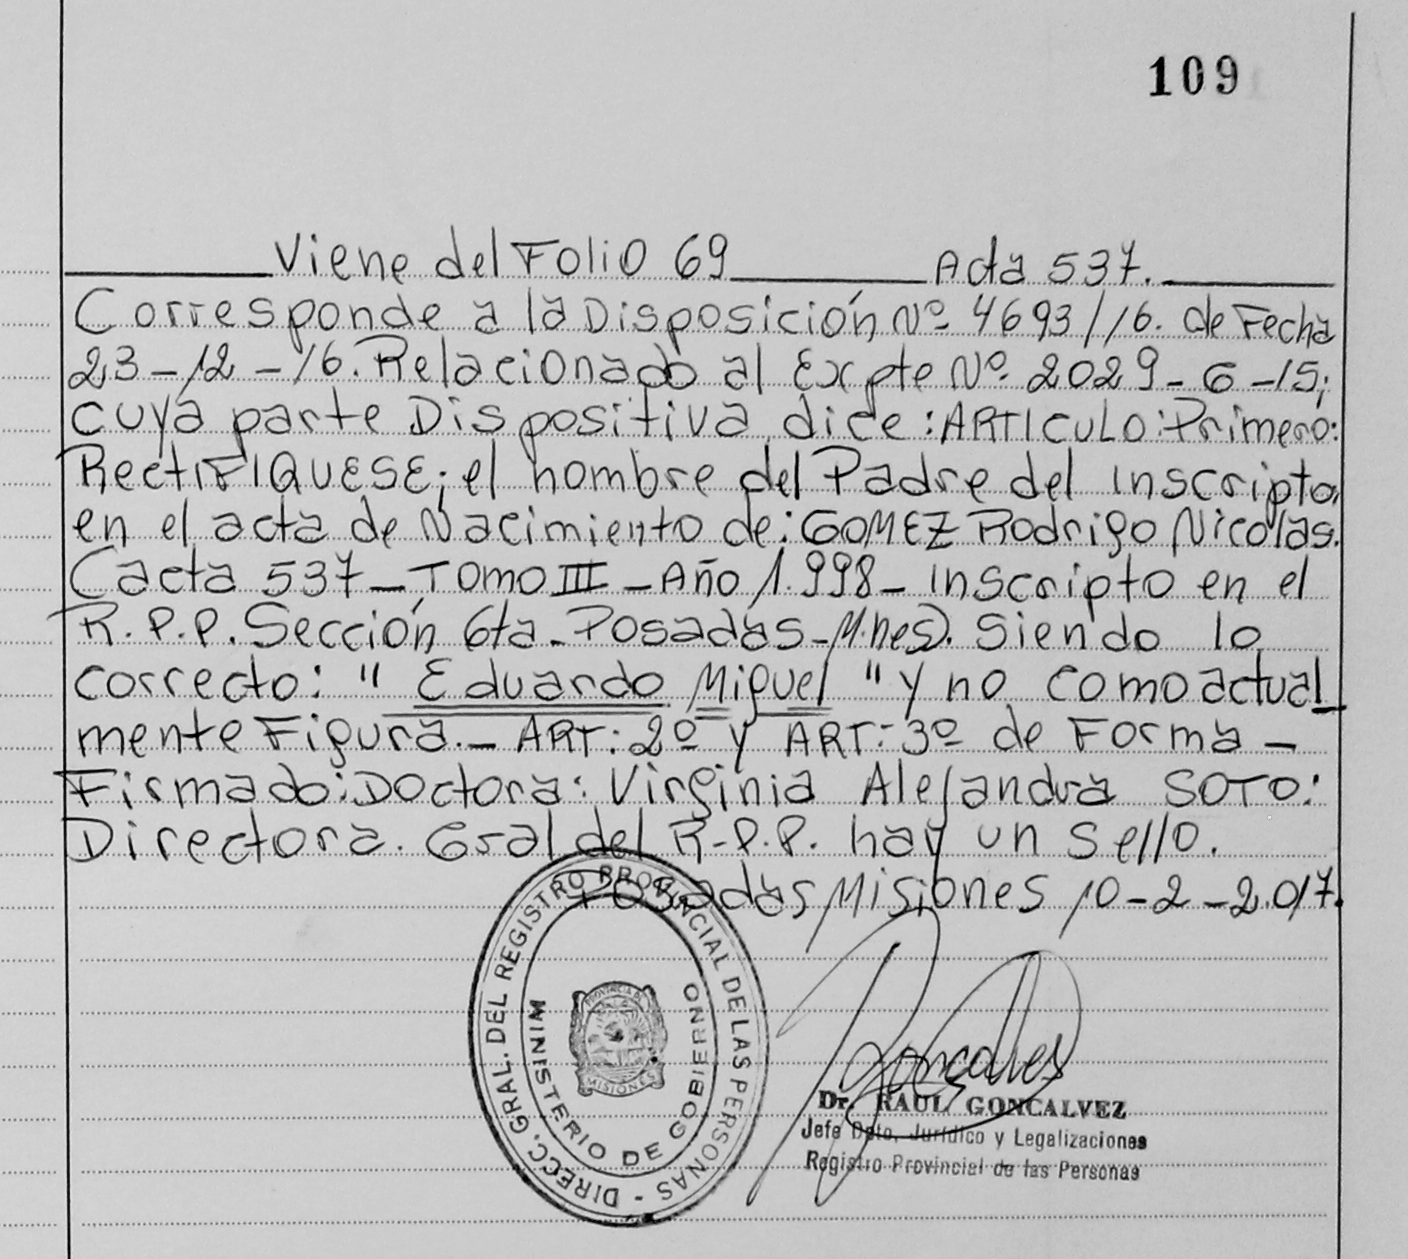 109
Viene del Folio 69 Acta 537.
Corresponde a la Disposición Nº 4693/16. de Fecha
23-12-16. Relacionado al Expte Nº 2029-G-15;
cuya parte Dispositiva dice: ARTICULO: Primero:
RectiFIQUESE; el nombre del Padre del inscripto,
en el acta de Nacimiento de: GOMEZ Rodrigo Nicolás.
(acta 537-Tomo III-Año 1.998- inscripto en el
R.P.P. Sección 6ta-Posadas-Mnes). Siendo lo
correcto: "Eduardo Miguel" y no como actual
mente Figura.- ART: 2º y ART: 3º de Forma-
Firmado: Doctora: Virginia Alejandra SOTO:
Directora. Gral del R.P.P. hay un sello.
Posadas Misiones 10-2-2.017.
DIRECC. GRAL. DEL REGISTRO PROVINCIAL DE LAS PERSONAS -
MINISTERIO DE GOBIERNO
PROVINCIA DE
MISIONES
Goncalves
Dr. RAUL GONCALVEZ
Jefe Dpto. Jurídico y Legalizaciones
Registro Provincial de las Personas